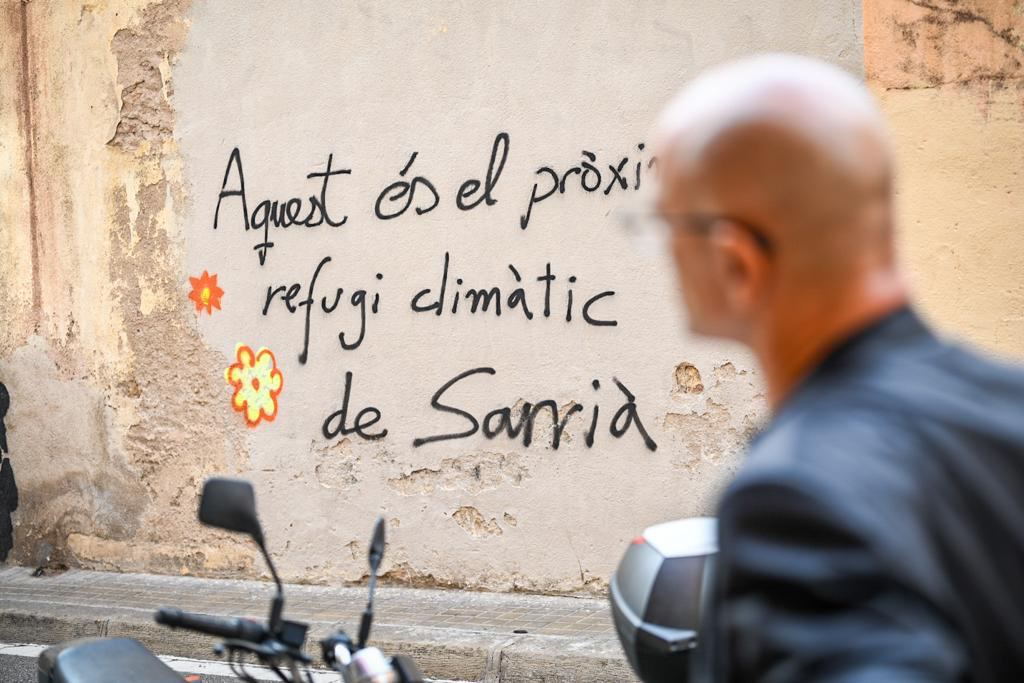 Aquest és el pròxi
refugi climàtic
de Sarrià